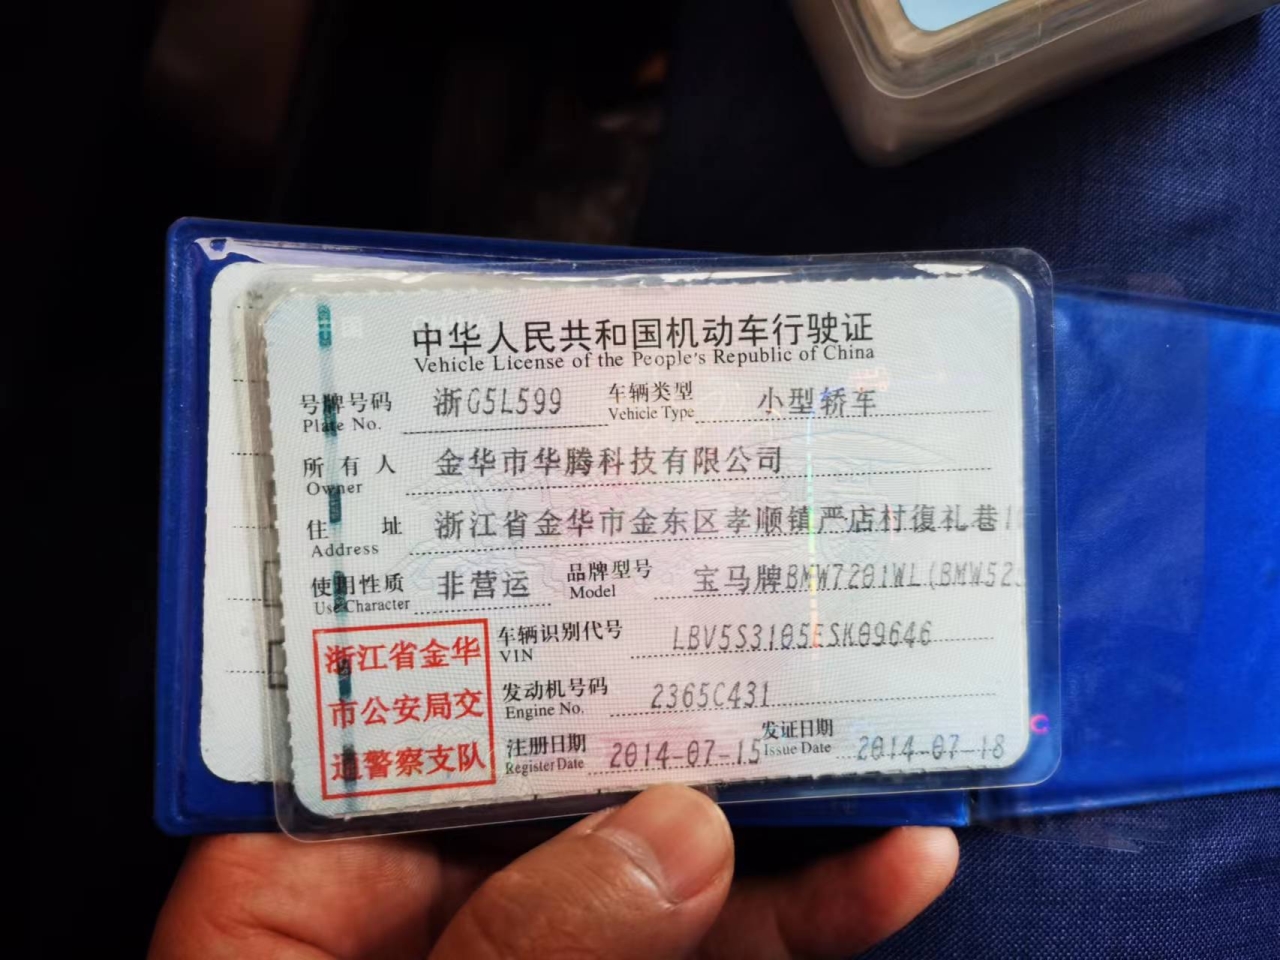 中华人民共和国机动车行驶证
Vehicle License of the People's Republic of China
号牌号码 浙G5L599 车辆类型 小型轿车
Plate No. Vehicle Type
所有人 金华市华腾科技有限公司
Owner
住址 浙江省金华市金东区孝顺镇严店村復礼巷1
Address
使用性质 非营运 品牌型号 宝马牌BMW7201WL(BMW52
Use Character Model
浙江省金华
市公安局交
通警察支队
车辆识别代号 LBV5S3105ESK09646
VIN
发动机号码 2365C431
Engine No.
注册日期 2014-07-15 发证日期 2014-07-18
Register Date Issue Date